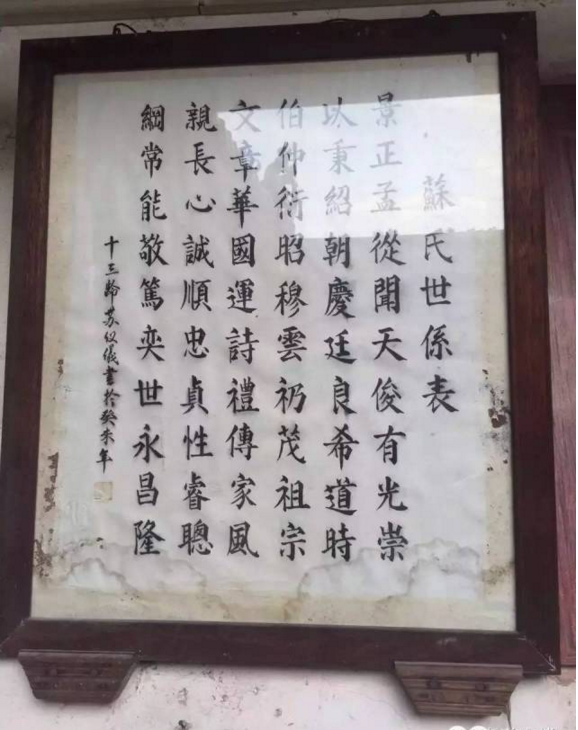 蘇氏世係表
景正孟從聞天俊有光崇
以秉紹朝慶廷良希道時
伯仲衍昭穆雲礽茂祖宗
文章華國運詩禮傳家風
親長心誠順忠貞性睿聰
綱常能敬篤奕世永昌隆
十三齡苏仪儀書於癸未年